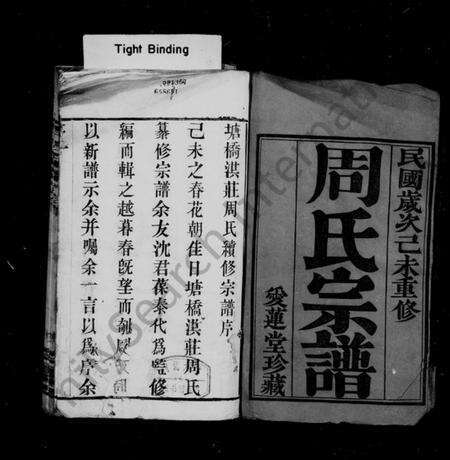 Tight Binding
民國歲次己未重修
周氏宗譜
愛蓮堂珍藏
塘橋淇莊周氏續修宗譜序
己未之春花朝佳日塘橋淇莊周氏
纂修宗譜余友沈君葆秦代為監修
編而輯之越暮春旣望而剞劂
以新譜示余并囑余一言以為序余